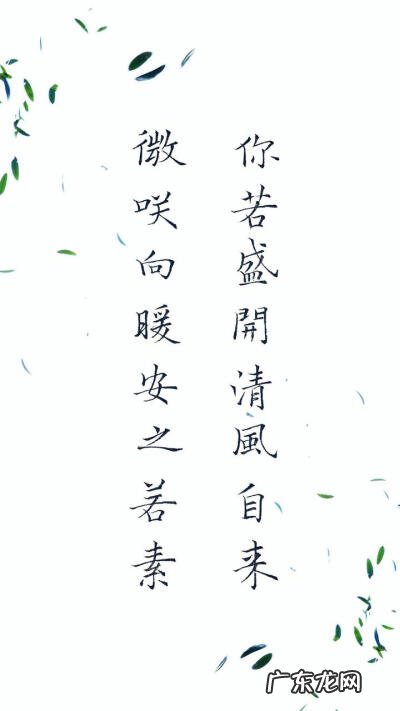 你若盛開清風自来
微咲向暖安之若素
广东龙网